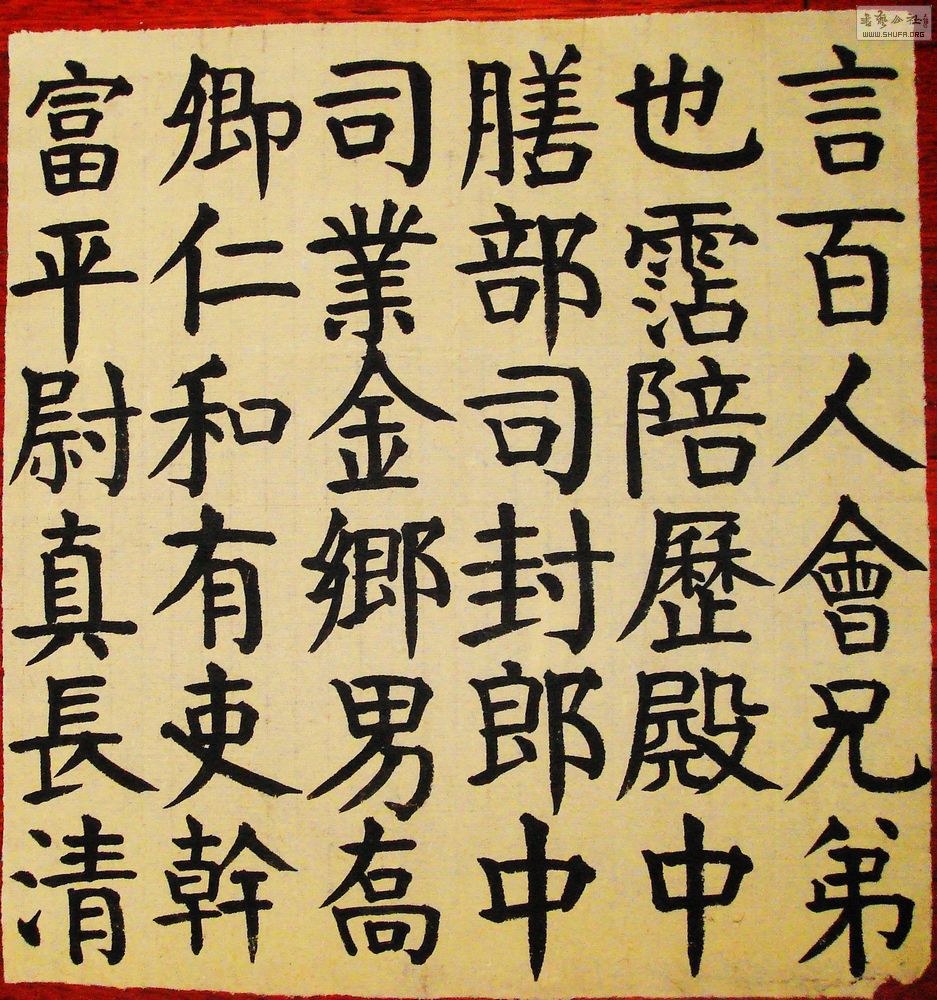 言百人會兄弟
也霑陪歷殿中
膳部司封郎中
司業金鄉男喬
卿仁和有吏幹
富平尉真長清
WWW.SHUFA.ORG